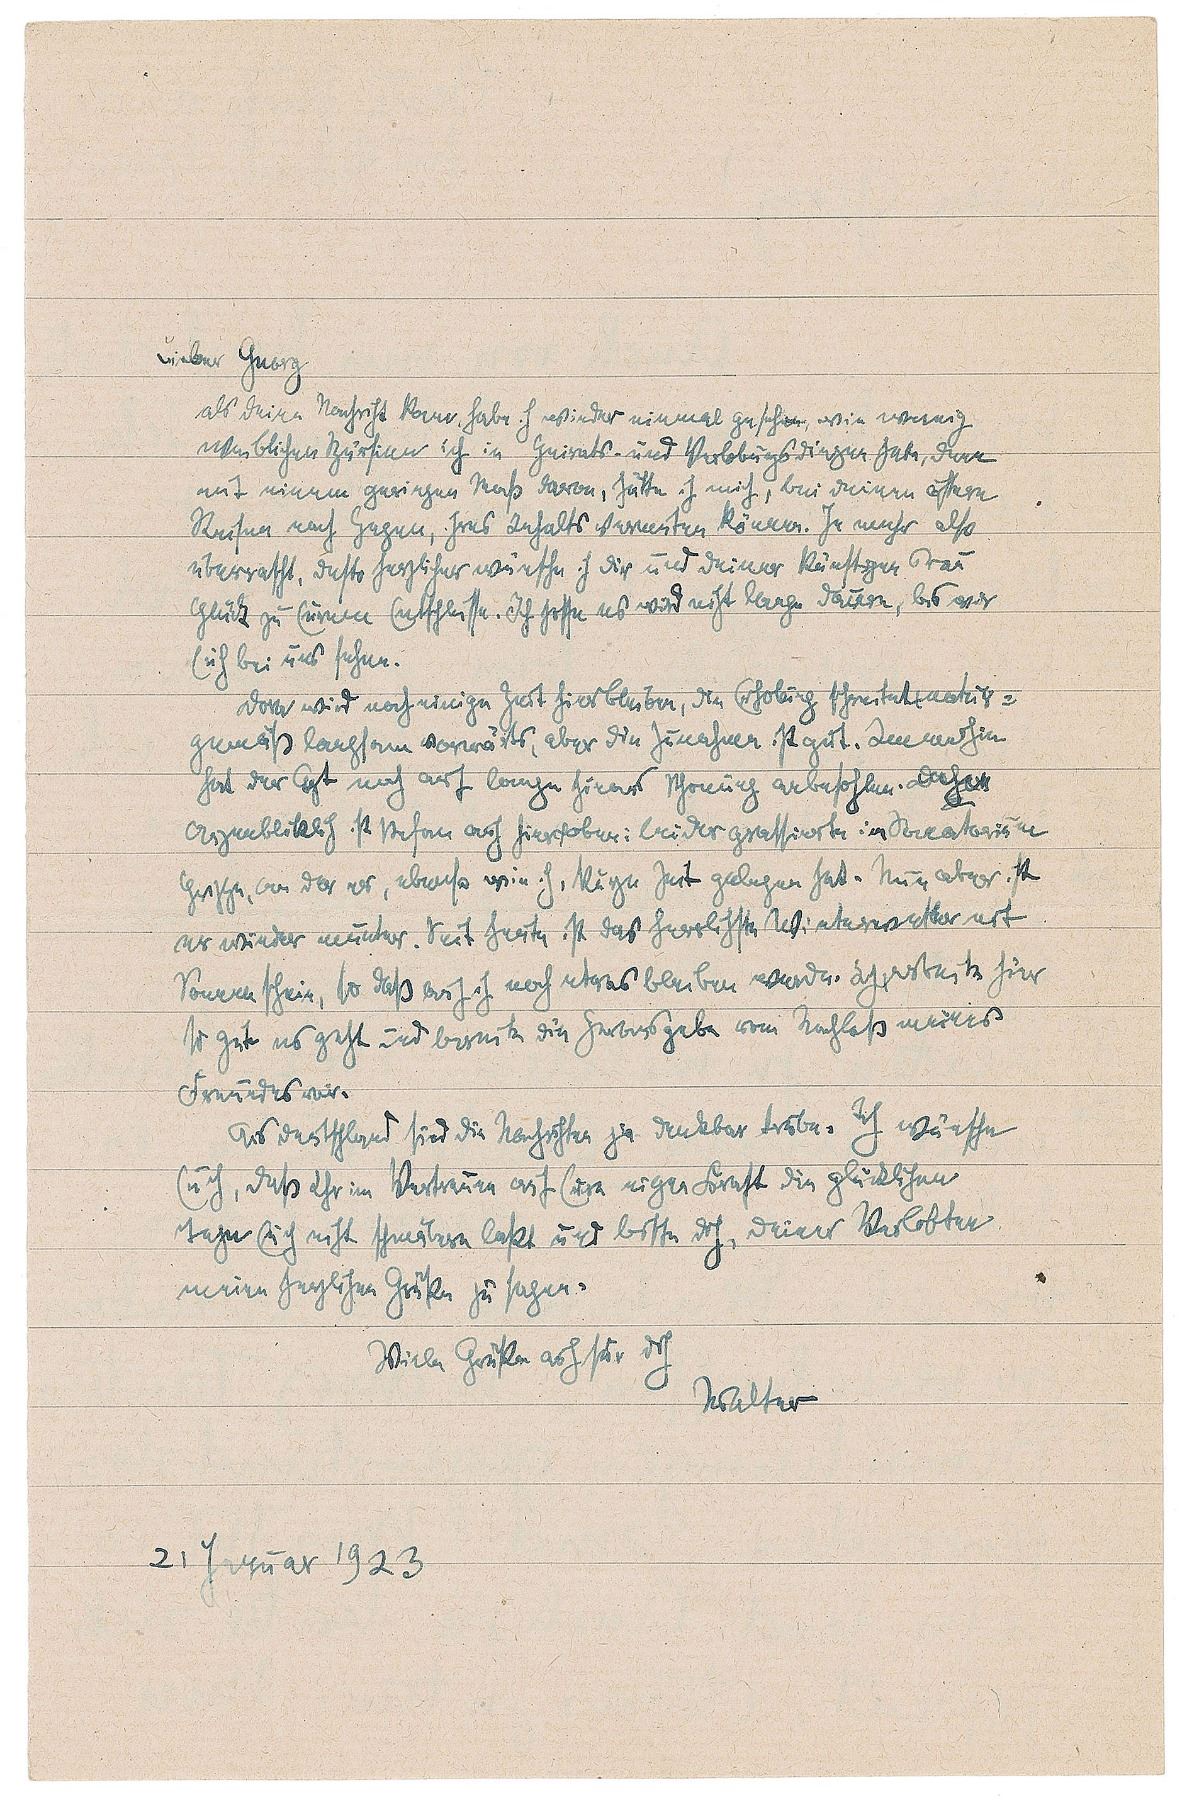 Lieber Georg
als deine Nachricht kam, habe ich wieder einmal gesehen, wie wenig
weiblichen Spürsinn ich in Heirats- und Verlobungsdingen habe, denn
mit einem geringen Maß davon, hätte ich mich, bei deinen öftern
Reisen nach Hagen, ihres Inhalts vermuten können. Je mehr also
überrascht, desto herzlicher wünsche ich dir und deiner künftigen Frau
Glück zu Eurem Entschlusse. Ich hoffe es wird nicht lange dauern, bis wir
Euch bei uns sehen.
Dora wird noch einige Zeit hier bleiben, die Erholung schreitet natur=
gemäß langsam vorwärts, aber die Zunahme ist gut. Immerhin
hat der Arzt noch auf lange hinaus Schonung anbefohlen.
Augenblicklich ist Stefan auch hier oben: leider grassierte im Sanatorium
Grippe, an der er, ebenso wie ich, kurze Zeit gelegen hat. Nun aber ist
er wieder munter. Seit heute ist das herrlichste Winterwetter mit
Sonnenschein, so daß auch ich noch etwas bleiben werde. Ich arbeite hier
so gut es geht und bereite die Herausgabe vom Nachlaß meines
Freundes vor.
Aus Deutschland sind die Nachrichten ja denkbar trübe. Ich wünsche
Euch, daß Ihr im Vertrauen auf Eure eigne Kraft die glücklichen
Tage Euch nicht schmälern laßt und bitte dich, deiner Verlobten
meinen herzlichen Grüße zu sagen.
Viele Grüße auch für dich
Walter
21 Januar 1923